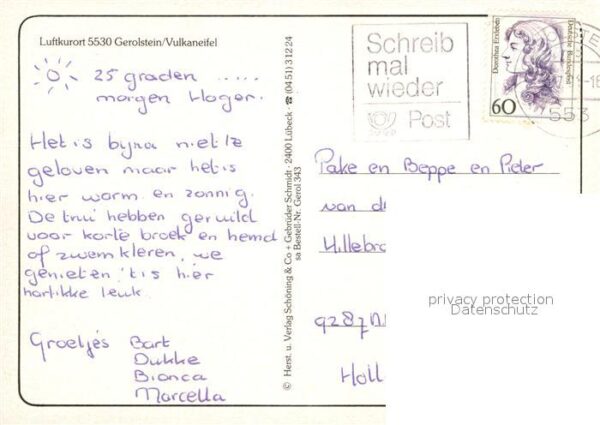 Luftkurort 5530 Gerolstein/Vulkaneifel
25 graden .....
morgen Hoger.
Het is bijna niet te
geloven maar het is
hier warm en zonnig.
De trui hebben geruild
voor korte broek en hemd
of zwemkleren, we
genieten 'tis hier
hartikke leuk.
Groetjes Bart
Dukke
Bianca
Marcella
© Herst. u. Verlag Schöning & Co + Gebrüder Schmidt · 2400 Lübeck · ☎ (04 51) 3 12 24
sa Bestell-Nr. Gerol 343
Schreib
mal
wieder
Post
Dorothea Erxleben
Deutsche Bundespost
60
553
Pake en Beppe en Pieter
van d
Hillebr
9287
Holl
privacy protection
Datenschutz